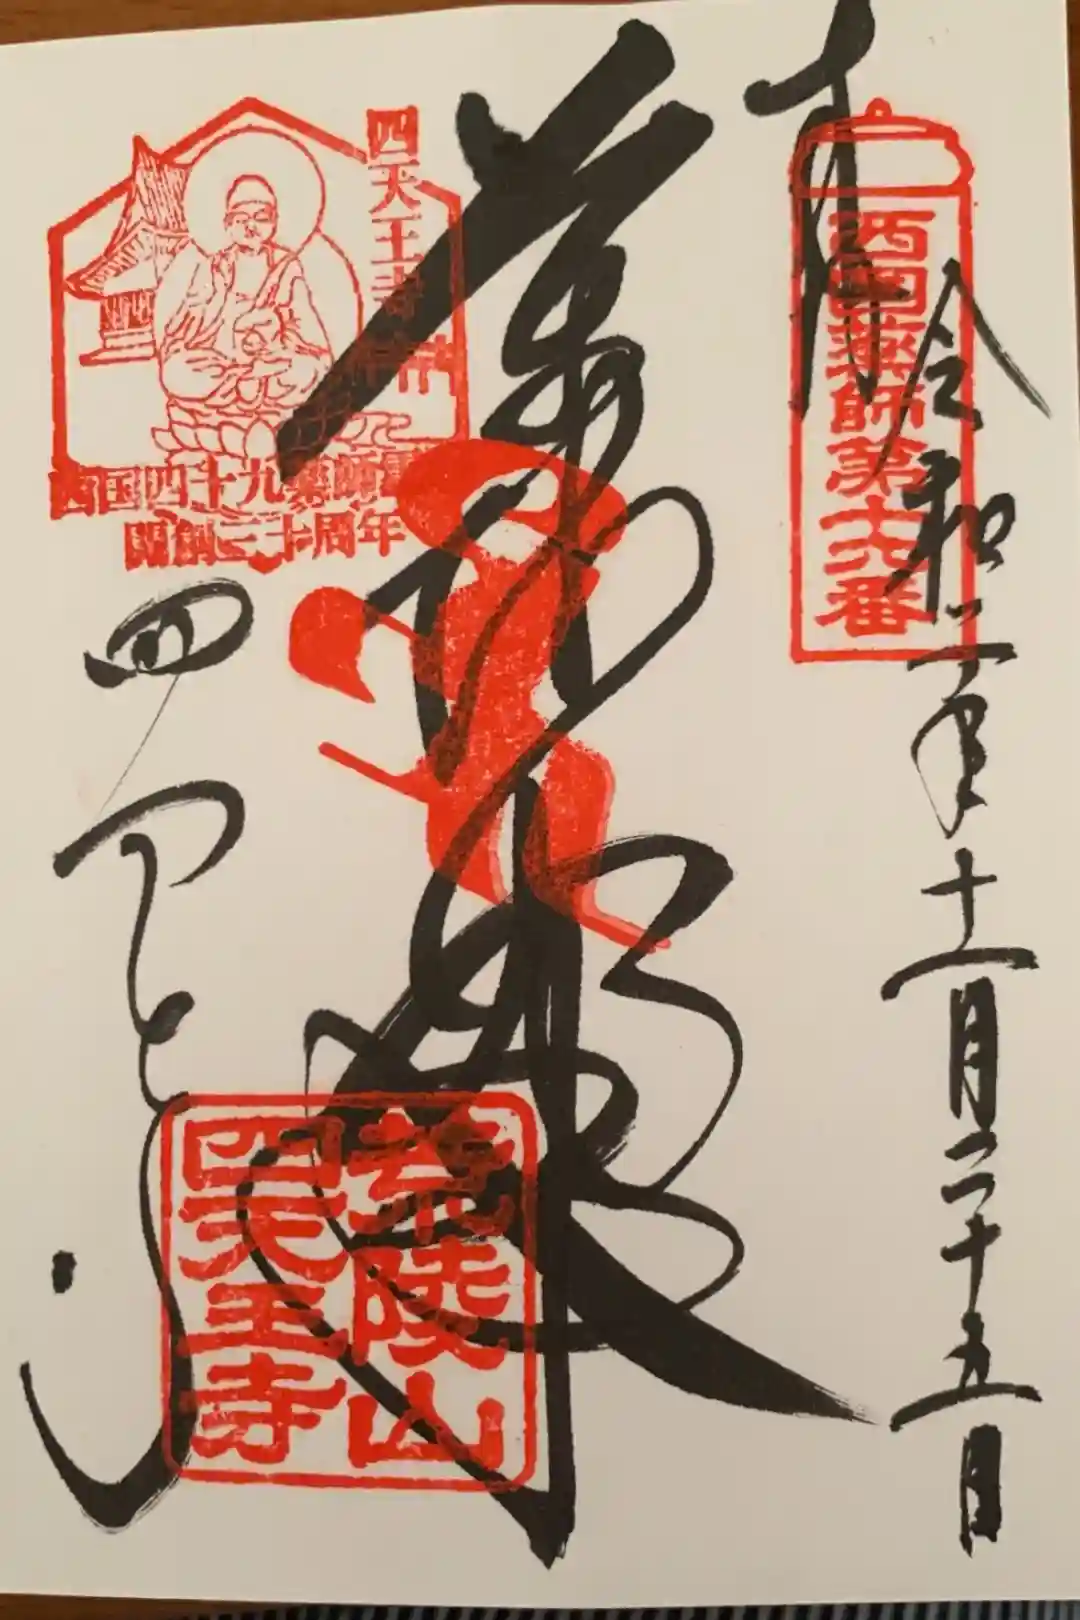 奉
西国薬師第十六番
令和二年十一月二十五日
薬師如来
四天王寺
西国四十九薬師霊
開創三十周年
荒陵山
四天王寺
四天王寺